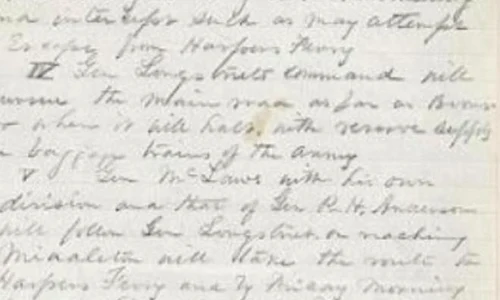 and intercept such as may attempt
Escape from Harpers Ferry
IV Gen Longstreets command will
pursue the main road as far as Boons
where it will halt, with reserve supply
baggage trains of the army
V Gen McLaws with his own
division and that of Gen R. H. Anderson
will follow Gen Longstreet. on reaching
Middleton will take the route to
Harpers Ferry and by Friday morning